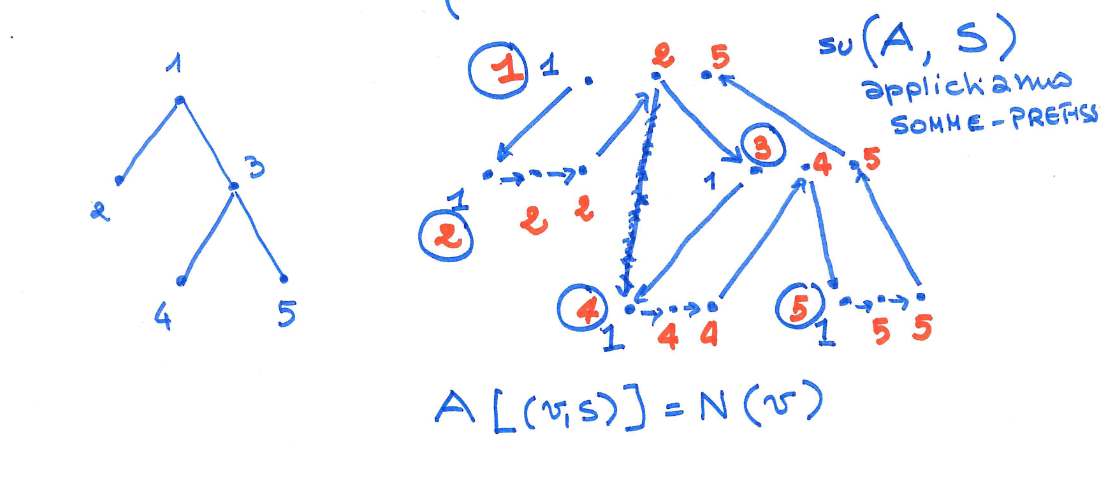 1
2
3
4
5
1 1
2
5
su (A, S)
applichiamo
SOMME-PREFISSE
1
2
2
2
1
3
4
5
4
1
4
4
5
1
5
5
A[(v,s)] = N(v)